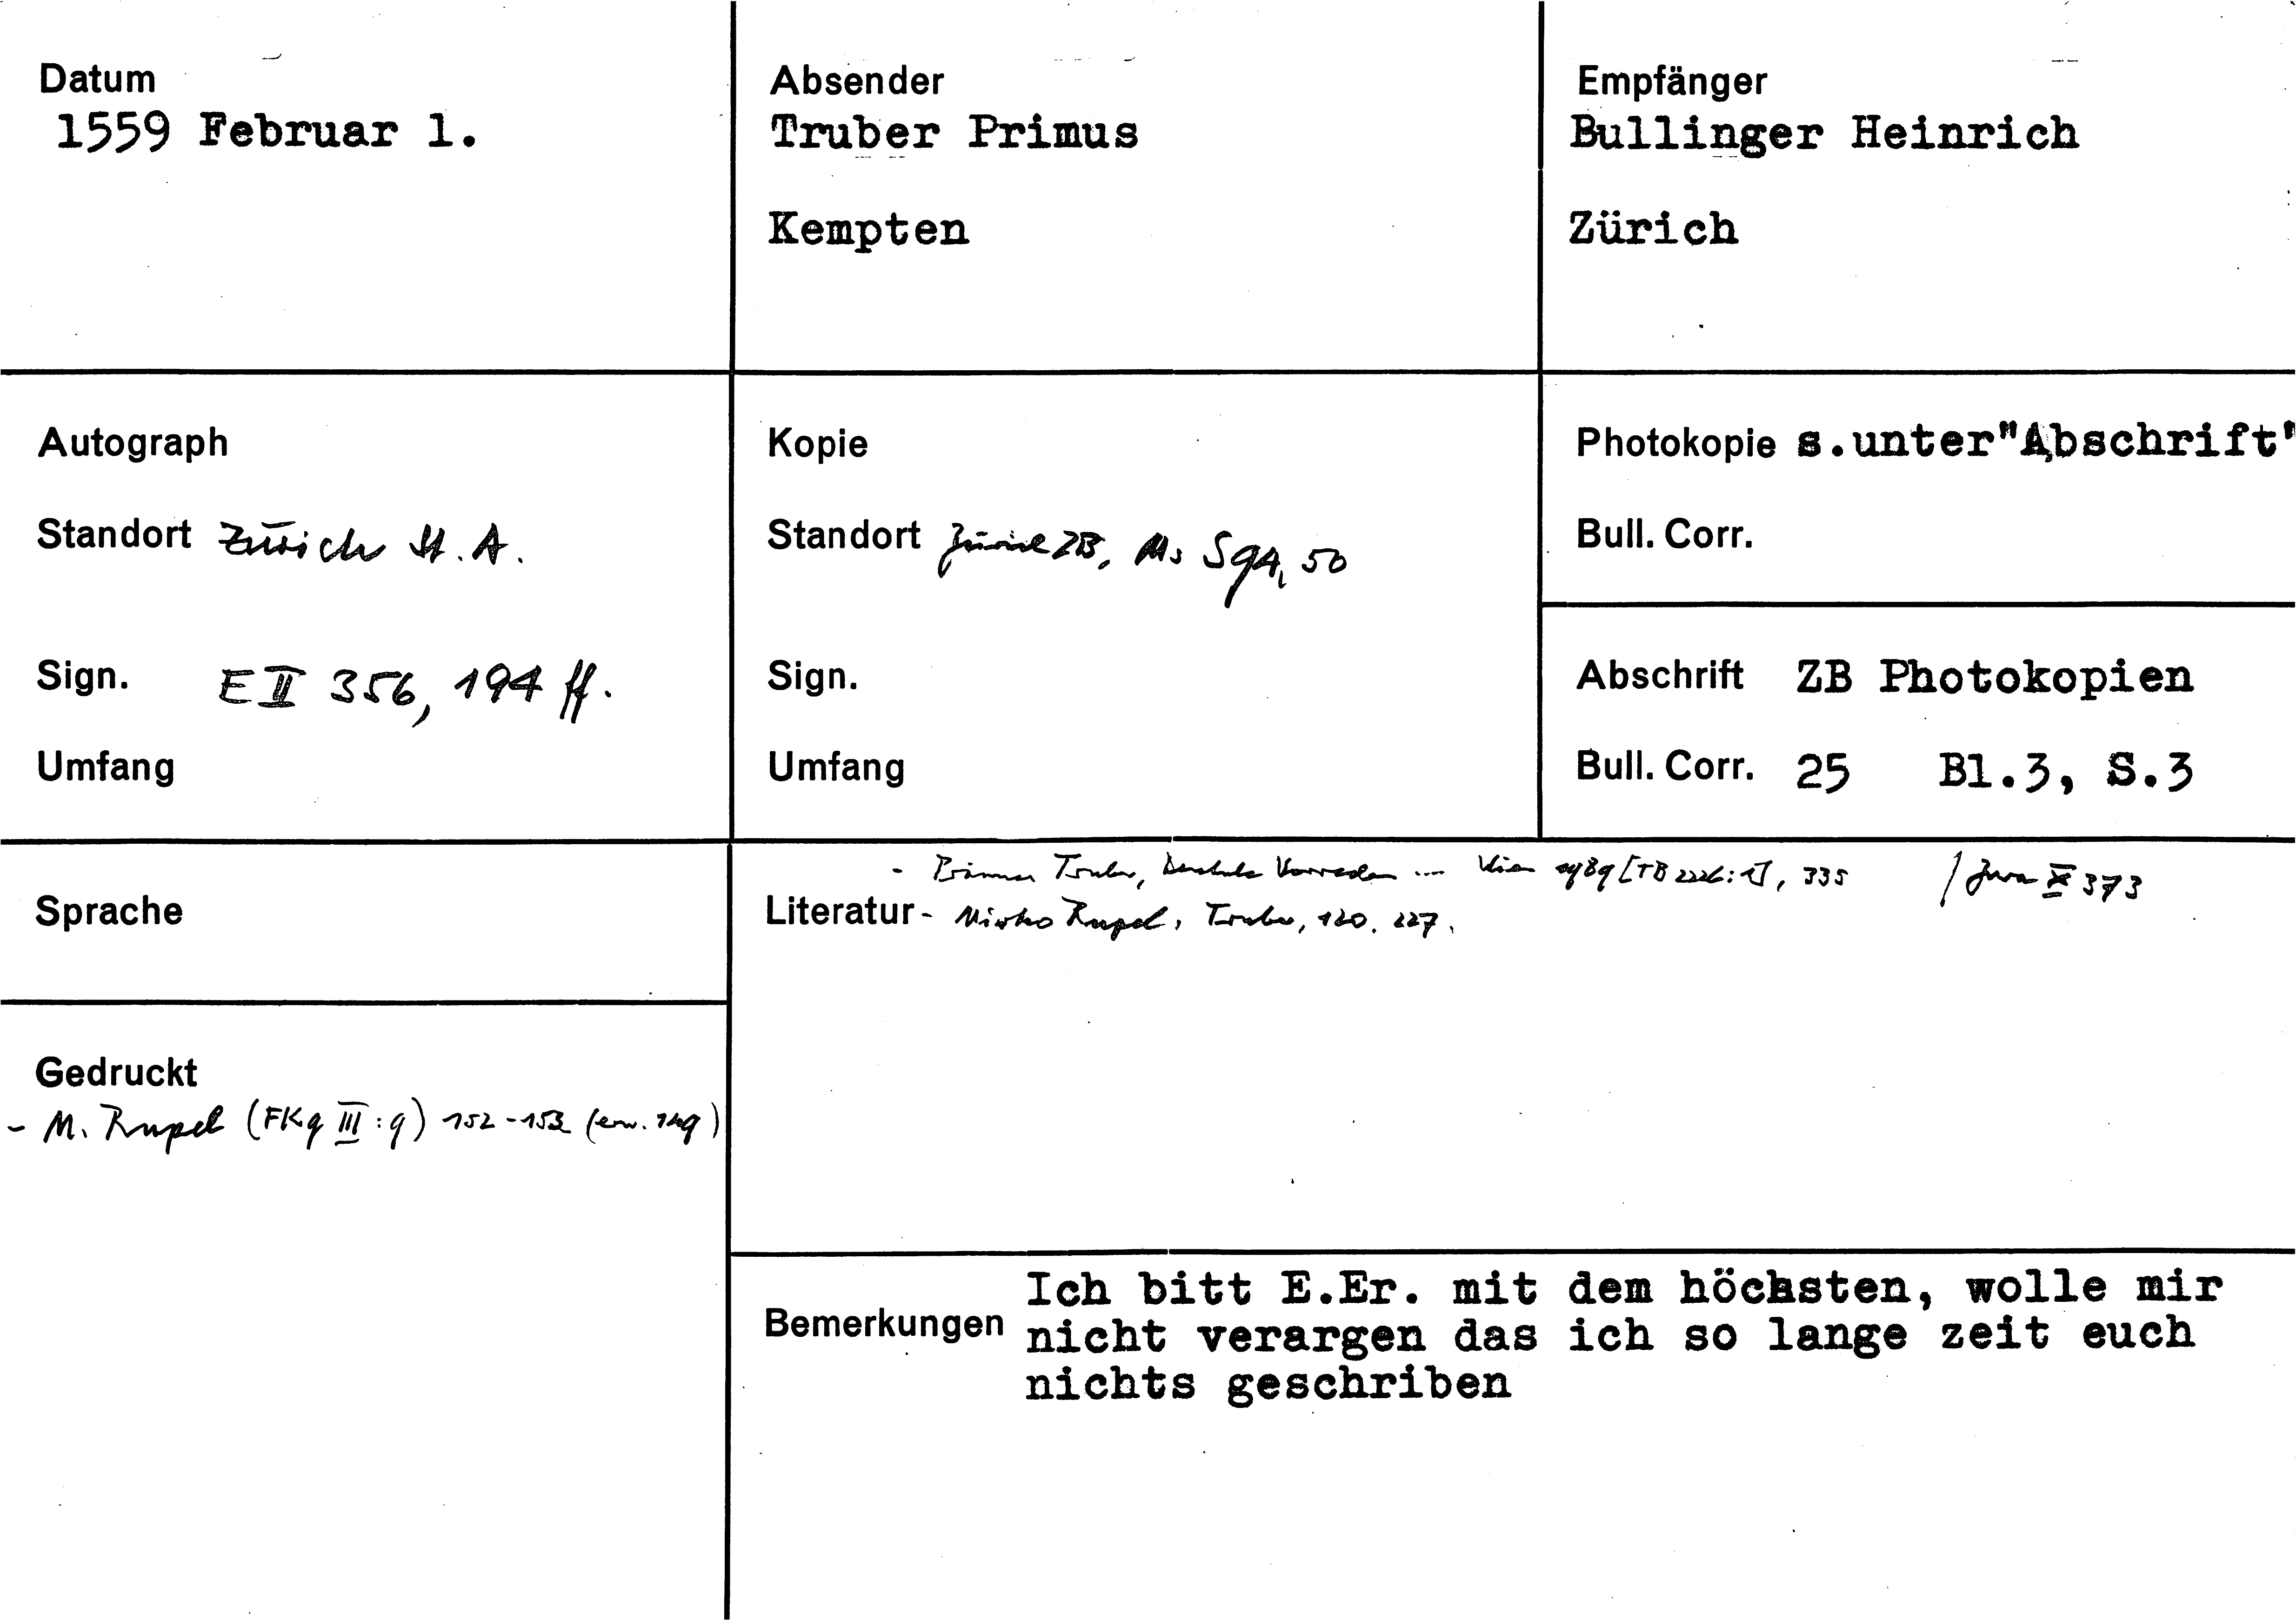 Datum
1559 Februar 1.
Absender
Truber Primus
Kempten
Empfänger
Bullinger Heinrich
Zürich
Autograph
Standort Zürich St. A.
Sign. E II 356, 194 ff.
Umfang
Kopie
Standort Zürich ZB, Ms S 94, 50
Sign.
Umfang
Photokopie s.unter"Abschrift"
Bull. Corr.
Abschrift ZB Photokopien
Bull. Corr. 25 Bl.3, S.3
Sprache
Gedruckt
- M. Rupel (FKg III : 9) 152-153 (erw. 149)
- Primus Truber, Deutsche Vorreden ... [TB 2226:1], 335 / Zwa X 373
Literatur - Mirko Rupel, Truber, 120. 227.
Bemerkungen
Ich bitt E.Er. mit dem höchsten, wolle mir
nicht verargen das ich so lange zeit euch
nichts geschriben